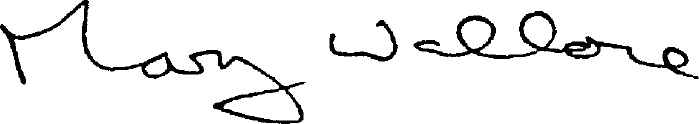 Mary Wallore